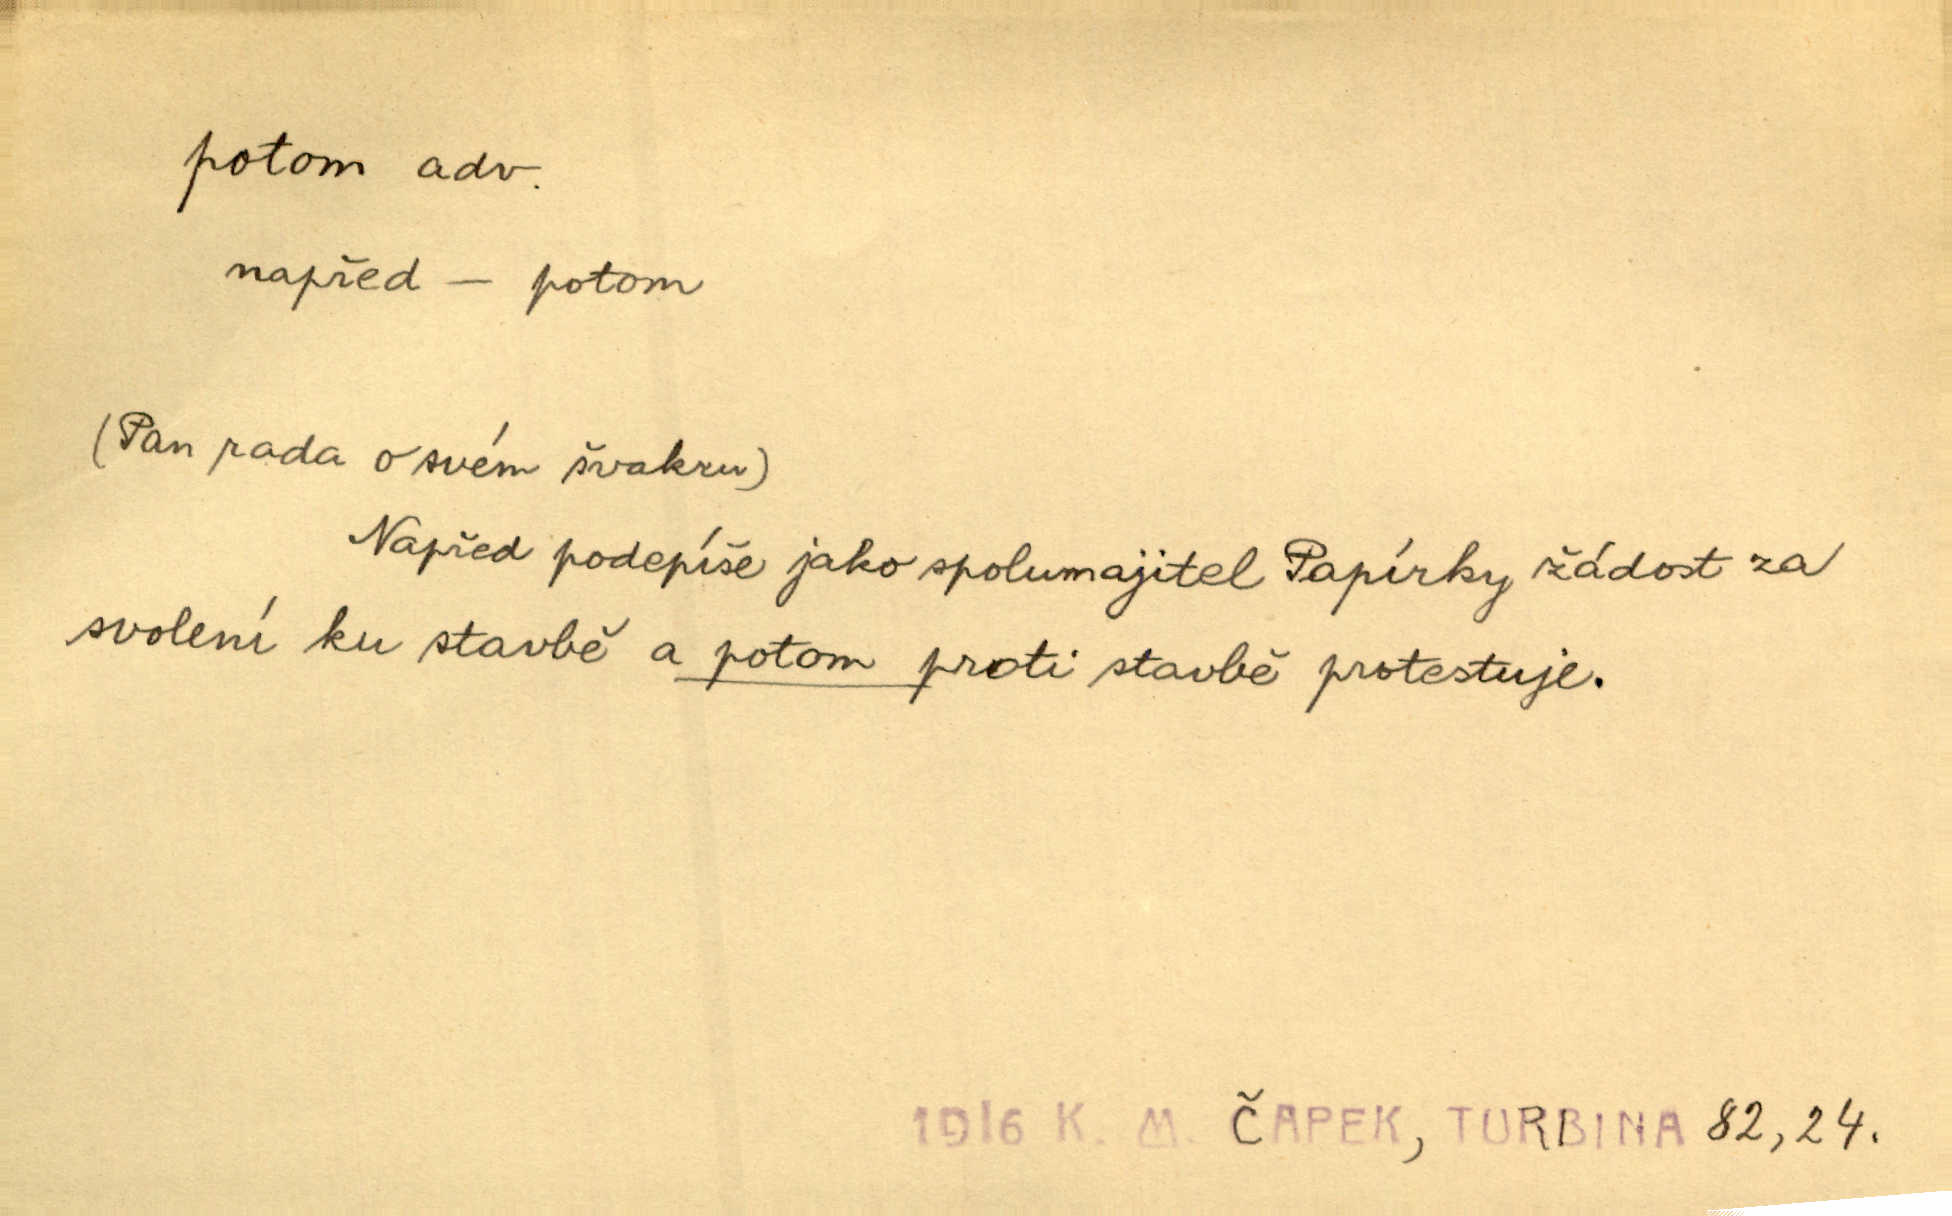 potom adv.
napřed – potom
(Pan rada o svém švakru)
Napřed podepíše jako spolumajitel Papírky žádost za
svolení ku stavbě a potom proti stavbě protestuje.
1916 K. M. ČAPEK, TURBINA 82,24.